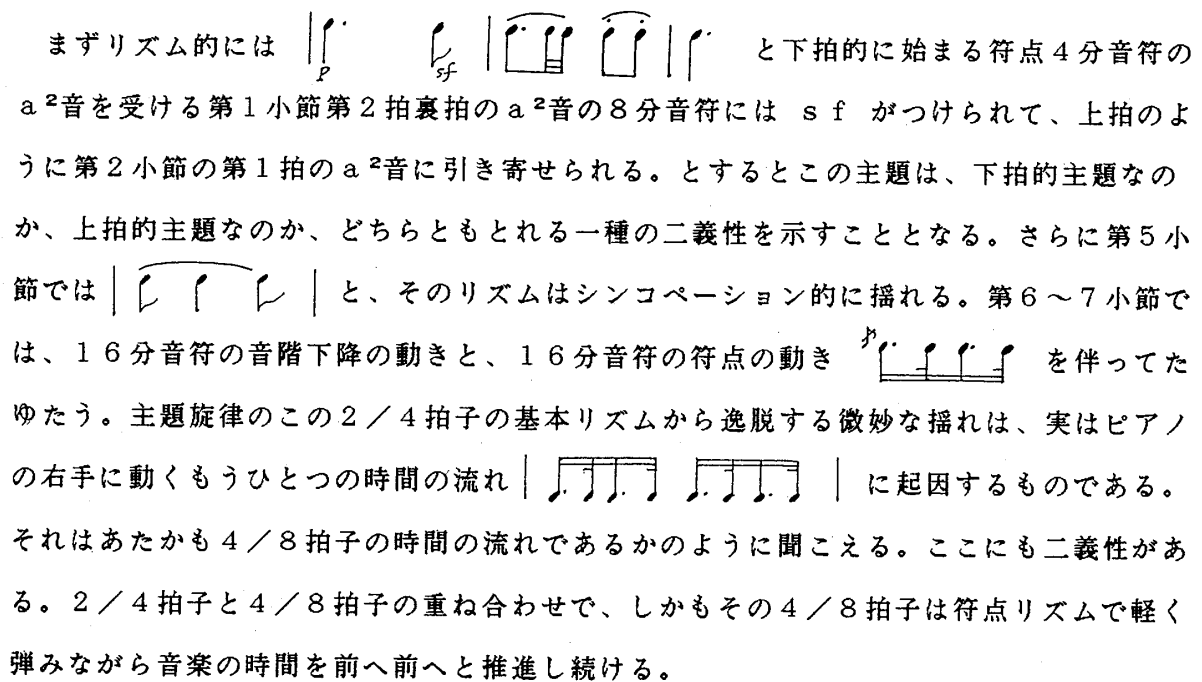 まずリズム的には p sf と下拍的に始まる符点4分音符の
a²音を受ける第1小節第2拍裏拍のa²音の8分音符には sf がつけられて、上拍のよ
うに第2小節の第1拍のa²音に引き寄せられる。とするとこの主題は、下拍的主題なの
か、上拍的主題なのか、どちらともとれる一種の二義性を示すこととなる。さらに第5小
節では と、そのリズムはシンコペーション的に揺れる。第6~7小節で
は、16分音符の音階下降の動きと、16分音符の符点の動き を伴ってた
ゆたう。主題旋律のこの2/4拍子の基本リズムから逸脱する微妙な揺れは、実はピアノ
の右手に動くもうひとつの時間の流れ に起因するものである。
それはあたかも4/8拍子の時間の流れであるかのように聞こえる。ここにも二義性があ
る。2/4拍子と4/8拍子の重ね合わせで、しかもその4/8拍子は符点リズムで軽く
弾みながら音楽の時間を前へ前へと推進し続ける。